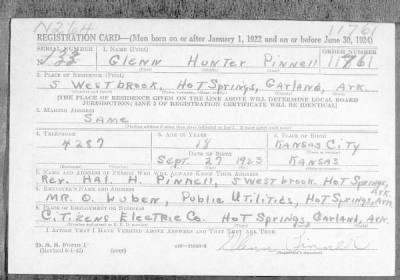 N264
11761
REGISTRATION CARD—(Men born on or after January 1, 1922 and on or before June 30, 1924)
SERIAL NUMBER
1. NAME (Print)
ORDER NUMBER
N 133
GLENN HUNTER PINNELL
11761
(First) (Middle) (Last)
2. PLACE OF RESIDENCE (Print)
5 WESTBROOK, HOT SPRINGS, GARLAND, ARK.
[THE PLACE OF RESIDENCE GIVEN ON THE LINE ABOVE WILL DETERMINE LOCAL BOARD
JURISDICTION; LINE 2 OF REGISTRATION CERTIFICATE WILL BE IDENTICAL]
3. MAILING ADDRESS
SAME
4. TELEPHONE
5. AGE IN YEARS
6. PLACE OF BIRTH
4287
18
KANSAS CITY
DATE OF BIRTH
SEPT. 27 1923
KANSAS
7. NAME AND ADDRESS OF PERSON WHO WILL ALWAYS KNOW YOUR ADDRESS
REV. HAL H. PINNELL, 5 WESTBROOK HOT SPRINGS, ARK.
8. EMPLOYER'S NAME AND ADDRESS
MR. O. LUBEN, PUBLIC UTILITIES, HOT SPRINGS, ARK.
9. PLACE OF EMPLOYMENT OR BUSINESS
CITIZENS ELECTRIC CO. HOT SPRINGS, GARLAND, ARK.
I AFFIRM THAT I HAVE VERIFIED ABOVE ANSWERS AND THAT THEY ARE TRUE.
D. S. S. Form 1
Glenn Pinnell